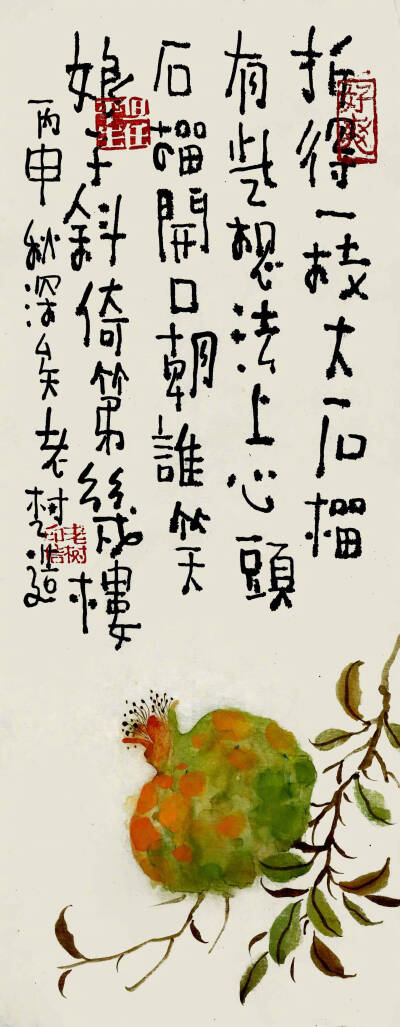 折得一枝大石榴
有些想法上心頭
石榴開口朝誰笑
娘子斜倚第幾樓
丙申秋深矣老樹造
好爽
老树